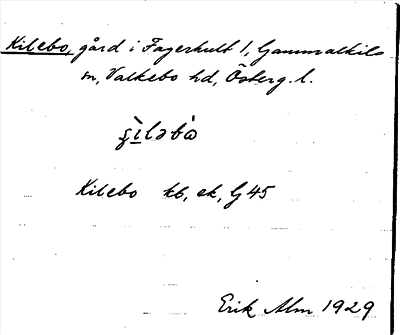 Kilebo, gård i Fagerhult 1, Gammalkils
sn, Valkebo hd, Österg. l.
Kilebo kb, ek, G 45
Erik Alm 1929